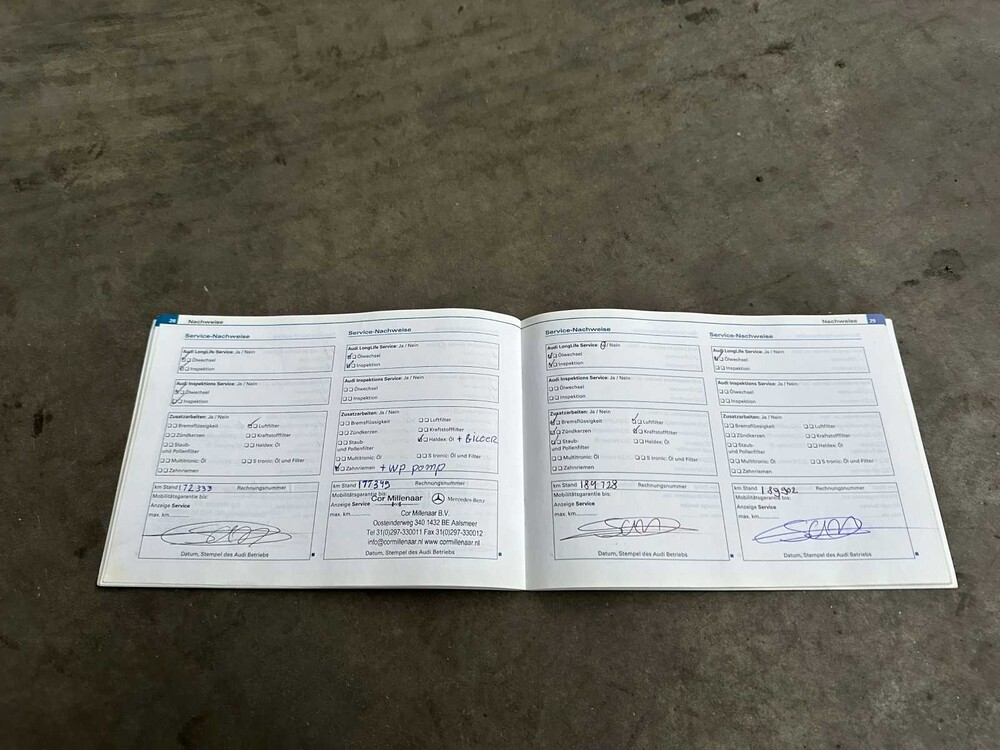 28 Nachweise
Service-Nachweise
Audi LongLife Service: Ja / Nein
Ölwechsel
Inspektion
Audi Inspektions Service: Ja / Nein
Ölwechsel
Inspektion
Zusatzarbeiten: Ja / Nein
Bremsflüssigkeit Luftfilter
Zündkerzen Kraftstofffilter
Staub- Haldex: Öl
und Pollenfilter
Multitronic: Öl S tronic: Öl und Filter
Zahnriemen
km Stand 172 333 Rechnungsnummer
Mobilitätsgarantie bis:
Anzeige Service
max. km
Datum, Stempel des Audi Betriebs
Service-Nachweise
Audi LongLife Service: Ja / Nein
Ölwechsel
Inspektion
Audi Inspektions Service: Ja / Nein
Ölwechsel
Inspektion
Zusatzarbeiten: Ja / Nein
Bremsflüssigkeit Luftfilter
Zündkerzen Kraftstofffilter
Staub- Haldex: Öl
und Pollenfilter
Multitronic: Öl S tronic: Öl und Filter
Zahnriemen + wp pomp
km Stand 177349 Rechnungsnummer
Mobilitätsgarantie bis:
Cor Millenaar Mercedes-Benz
Anzeige Service
max. km Cor Millenaar B.V.
Oosteinderweg 340 1432 BE Aalsmeer
Tel 31(0)297-330011 Fax 31(0)297-330012
info@cormillenaar.nl www.cormillenaar.nl
Datum, Stempel des Audi Betriebs
Nachweise 29
Service-Nachweise
Audi LongLife Service: Ja / Nein
Ölwechsel
Inspektion
Audi Inspektions Service: Ja / Nein
Ölwechsel
Inspektion
Zusatzarbeiten: Ja / Nein
Bremsflüssigkeit Luftfilter
Zündkerzen Kraftstofffilter
Staub- Haldex: Öl
und Pollenfilter
Multitronic: Öl S tronic: Öl und Filter
Zahnriemen
km Stand 184 728 Rechnungsnummer
Mobilitätsgarantie bis:
Anzeige Service
max. km
Datum, Stempel des Audi Betriebs
Service-Nachweise
Audi LongLife Service: Ja / Nein
Ölwechsel
Inspektion
Audi Inspektions Service: Ja / Nein
Ölwechsel
Inspektion
Zusatzarbeiten: Ja / Nein
Bremsflüssigkeit Luftfilter
Zündkerzen Kraftstofffilter
Staub- Haldex: Öl
und Pollenfilter
Multitronic: Öl S tronic: Öl und Filter
Zahnriemen
km Stand 189902 Rechnungsnummer
Mobilitätsgarantie bis:
Anzeige Service
max. km
Datum, Stempel des Audi Betriebs